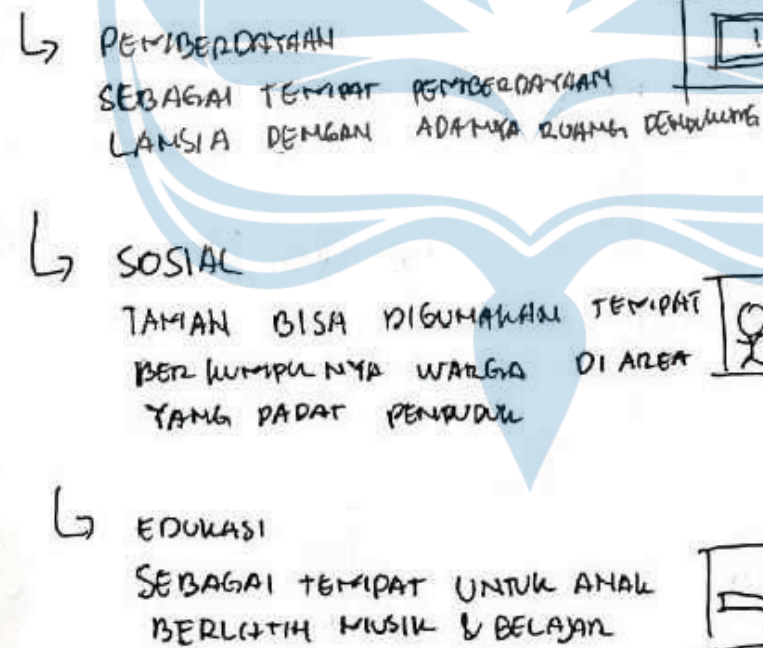 PEMBERDAYAAN
SEBAGAI TEMPAT PEMBERDAYAAN
LANSIA DENGAN ADANYA RUANG PENDUKUNG
SOSIAL
TAMAN BISA DIGUNAKAN TEMPAT
BERKUMPULNYA WARGA DI AREA
YANG PADAT PENDUDUK
EDUKASI
SEBAGAI TEMPAT UNTUK ANAK
BERLATIH MUSIK & BELAJAR